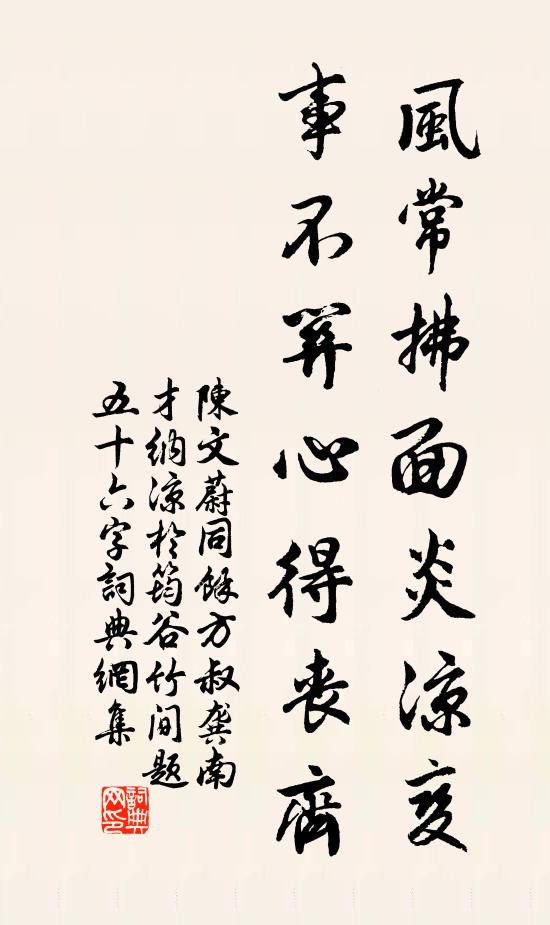 風常拂面炎涼变
事不關心得丧齊
陳文蔚同餘方叔龔南
才納涼於筠谷竹間題
五十六字詞典網集
詞典网印